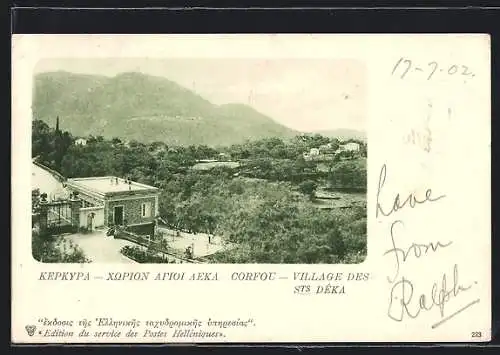 17-7.02.
Love
from
Ralph.
ΚΕΡΚΥΡΑ — ΧΩΡΙΟΝ ΑΓΙΟΙ ΔΕΚΑ CORFOU — VILLAGE DES
STS DÉKA
"ἔκδοσις τῆς Ἑλληνικῆς ταχυδρομικῆς ὑπηρεσίας".
«Edition du service des Postes Helléniques».
223